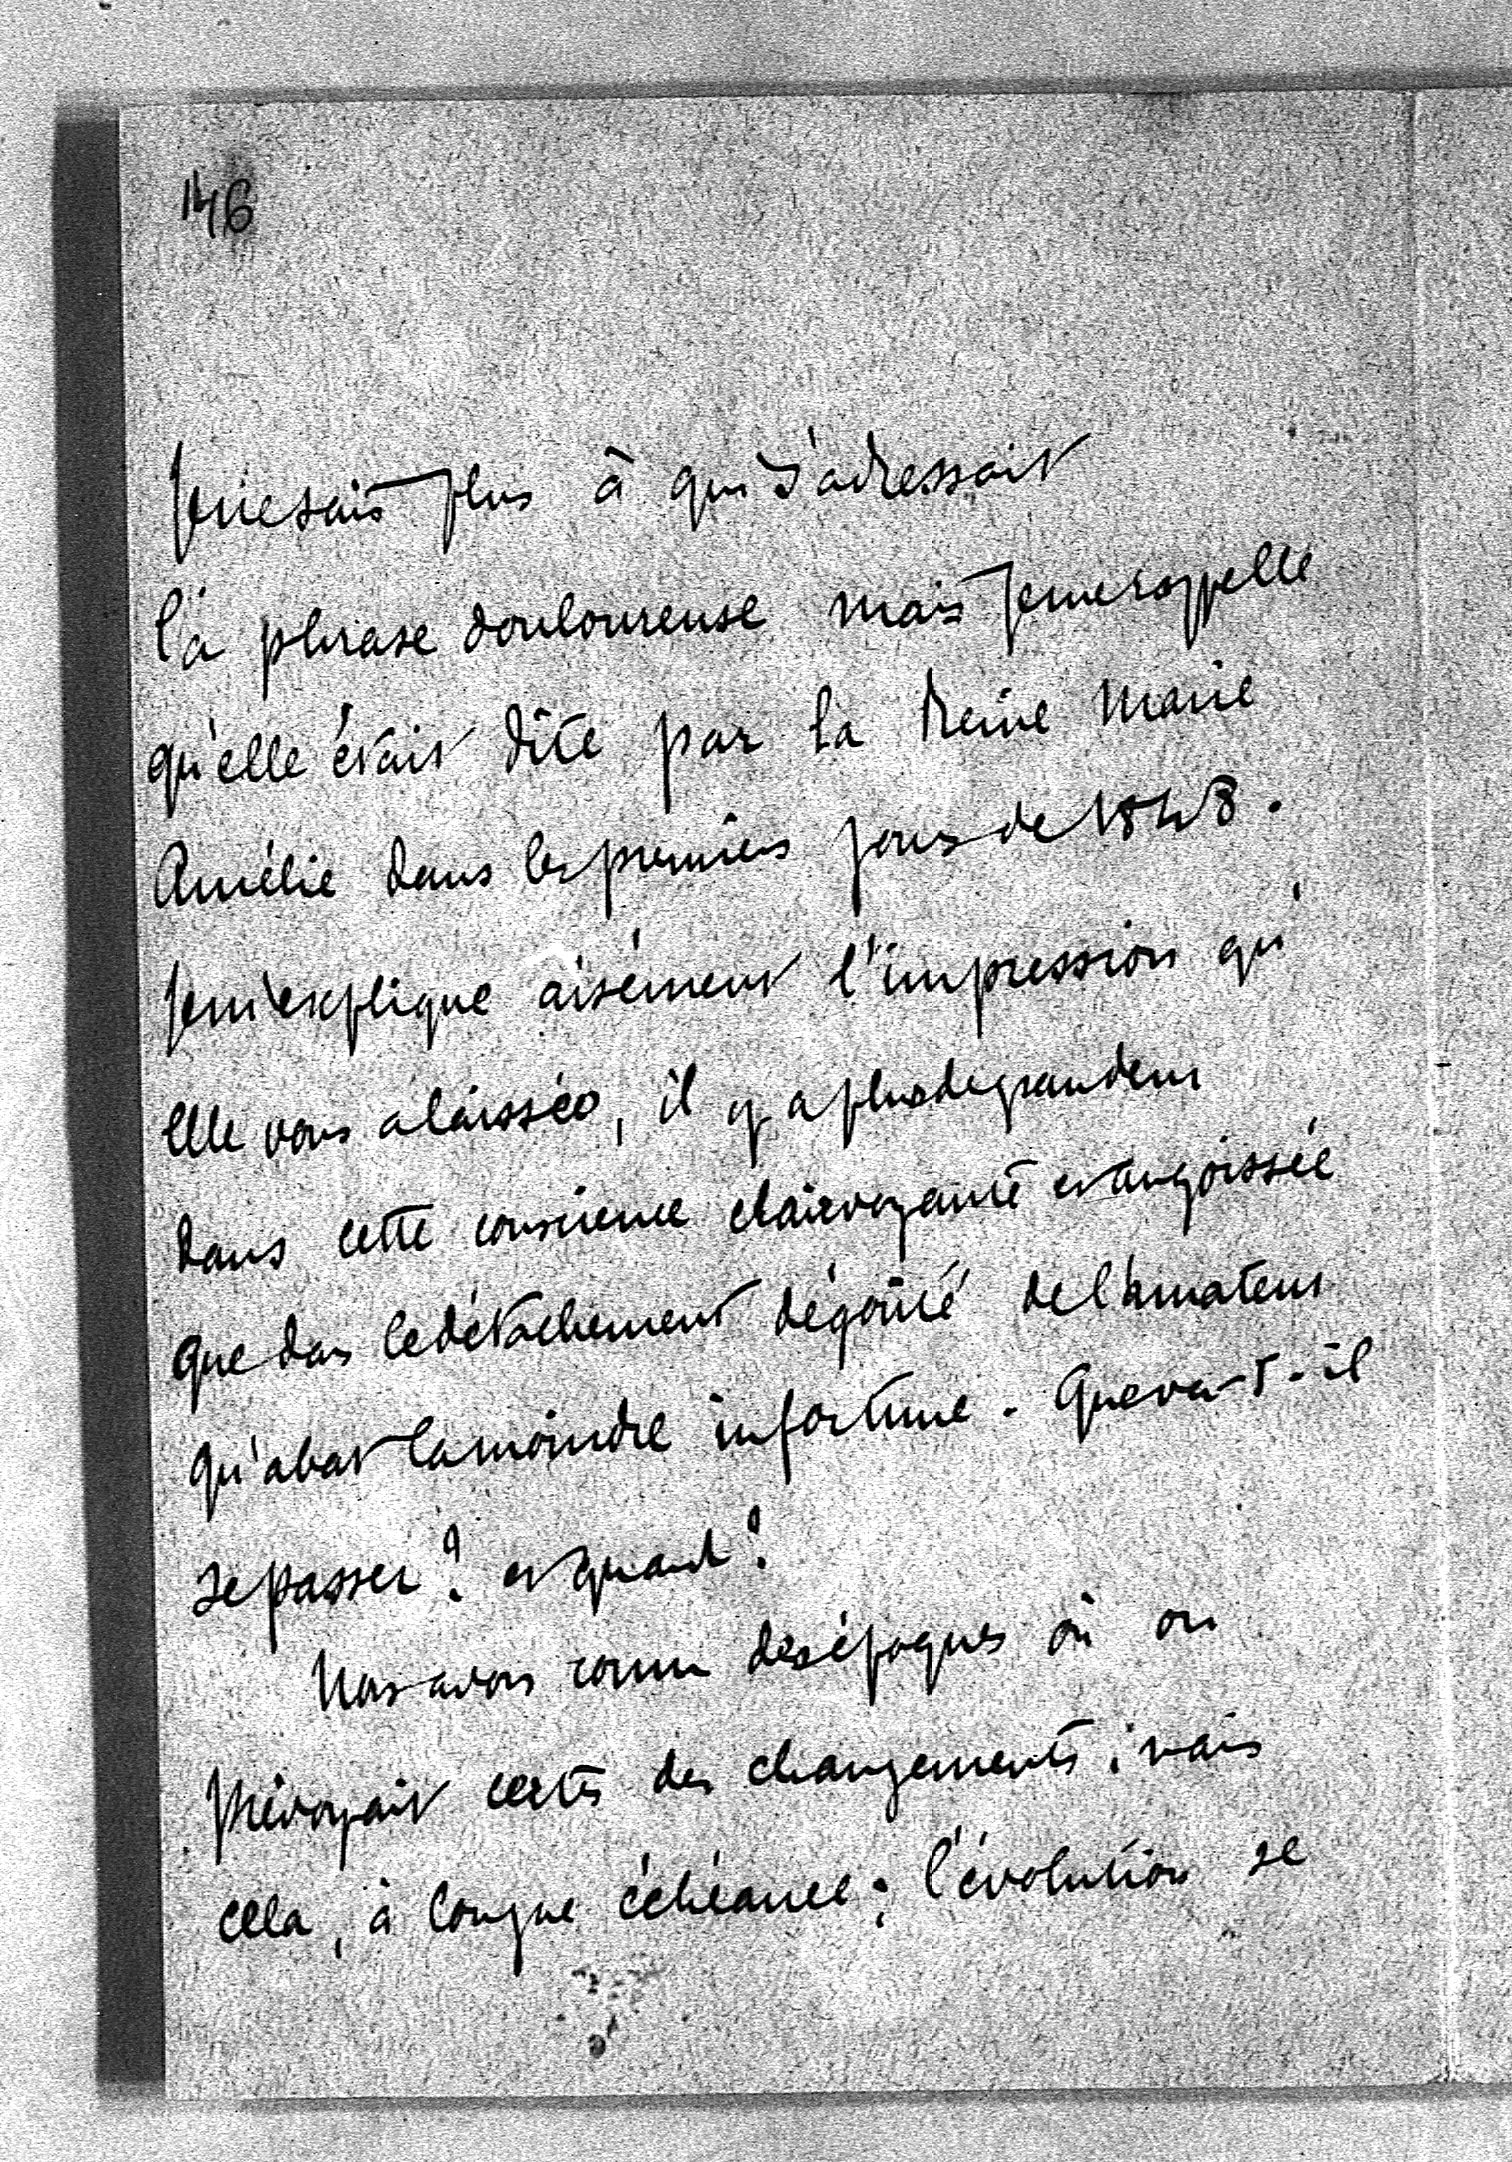 146
Je ne sais plus à qui s'adressait
la phrase douloureuse mais je me rappelle
qu'elle était dite par la Reine Marie
Amélie dans les premiers jours de 1848.
Je m'explique aisément l'impression qu'
elle vous a laissée, il y a plus de grandeur
dans cette conscience clairvoyante et angoissée
que dans le détachement dégoûté de l'amateur
qu'abat la moindre infortune. Que va-t-il
se passer? et quand?
Nous avons connu des époques où on
prévoyait certes des changements; mais
cela, à longue échéance; l'évolution se